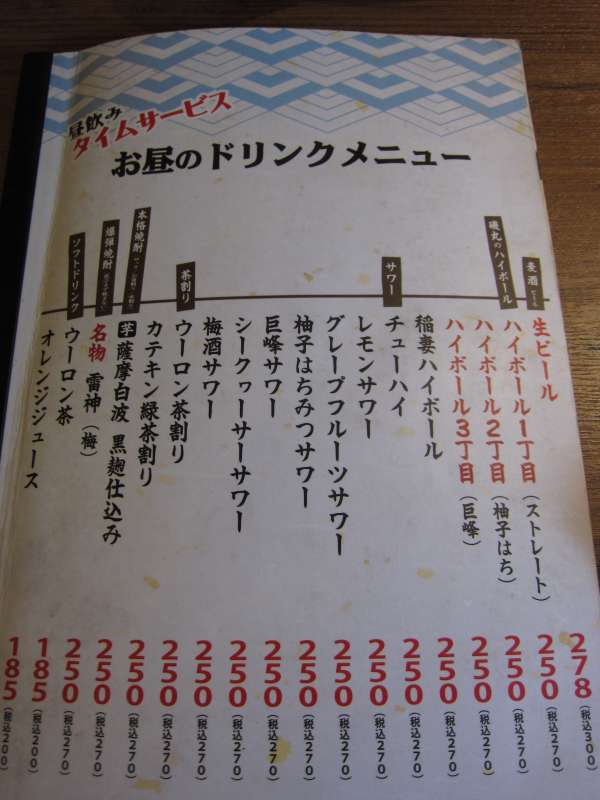 昼飲み
タイムサービス
お昼のドリンクメニュー
麦酒
生ビール 278 (税込300)
磯丸のハイボール
ハイボール1丁目(ストレート) 250 (税込270)
ハイボール2丁目(柚子はち) 250 (税込270)
ハイボール3丁目(巨峰) 250 (税込270)
稲妻ハイボール 250 (税込270)
サワー
チューハイ 250 (税込270)
レモンサワー 250 (税込270)
グレープフルーツサワー 250 (税込270)
柚子はちみつサワー 250 (税込270)
巨峰サワー 250 (税込270)
シークヮーサーサワー 250 (税込270)
梅酒サワー 250 (税込270)
茶割り
ウーロン茶割り 250 (税込270)
カテキン緑茶割り 250 (税込270)
本格焼酎
芋 薩摩白波 黒麹仕込み 250 (税込270)
爆弾焼酎
名物 雷神(梅) 250 (税込270)
ソフトドリンク
ウーロン茶 185 (税込200)
オレンジジュース 185 (税込200)